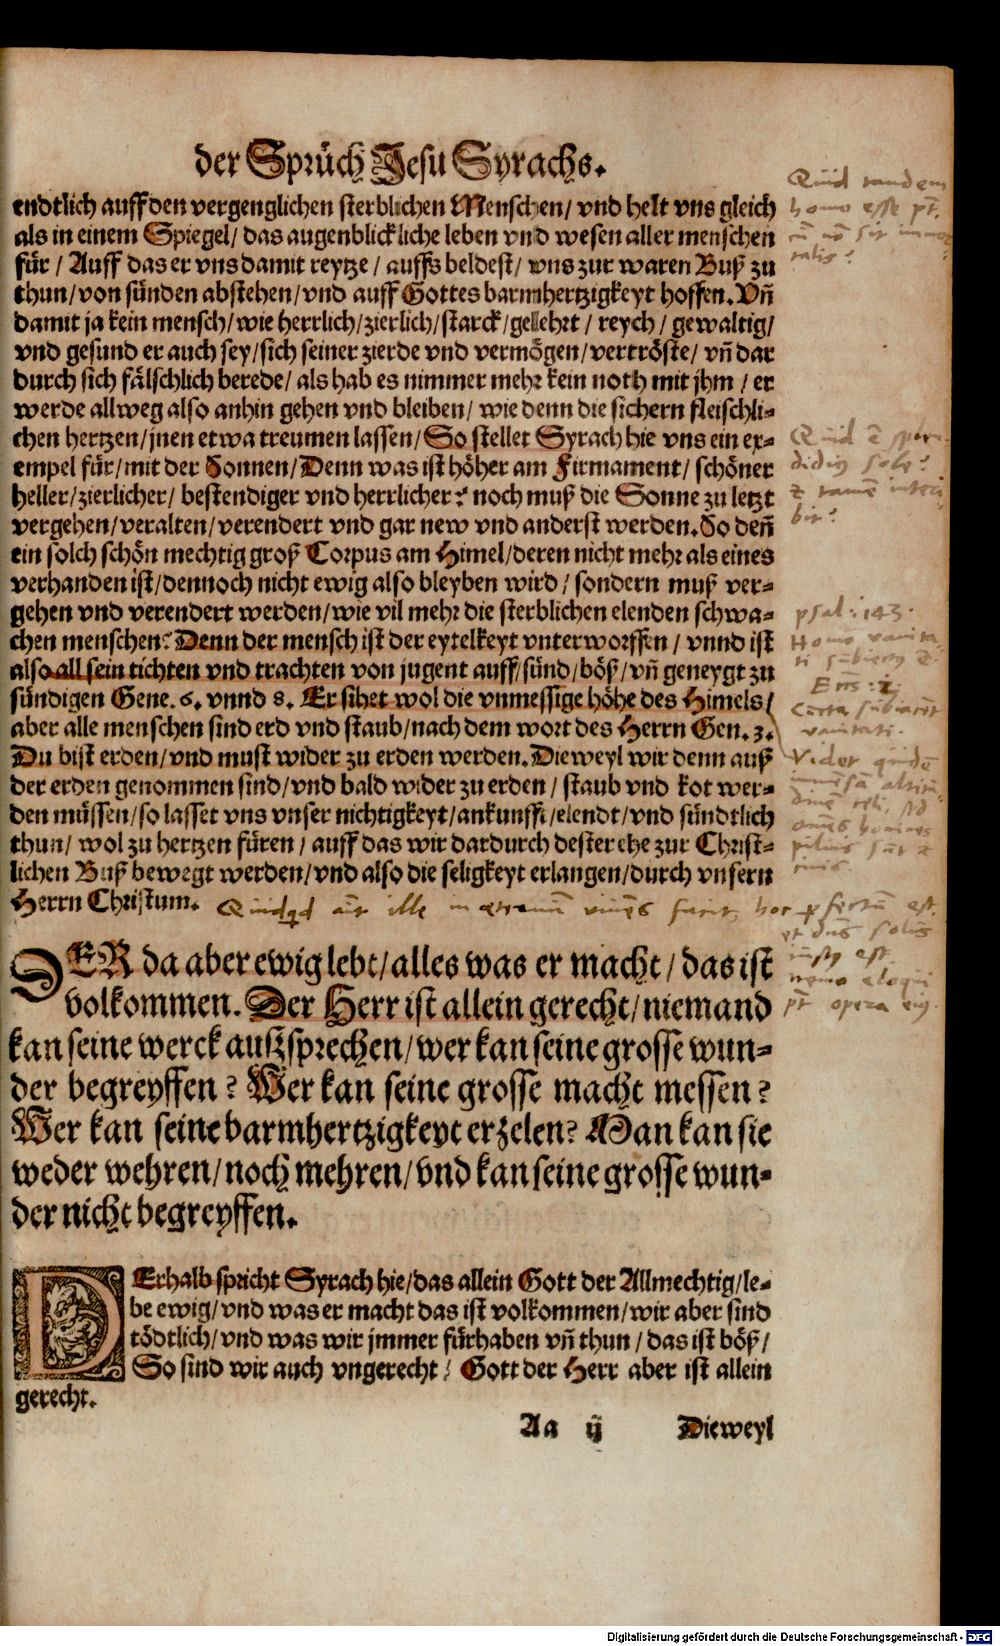 der Sprüch Jesu Syrachs.
endtlich auff den vergenglichen sterblichen Menschen/ vnd helt vns gleich
als in einem Spiegel/ das augenblickliche leben vnd wesen aller menschen
für / Auff das er vns damit reytze / auffs beldest/ vns zur waren Buß zu
thun/ von sünden abstehen/ vnd auff Gottes barmhertzigkeyt hoffen. Vñ
damit ja kein mensch/ wie herrlich/ zierlich/ starck/ gelehrt / reych / gewaltig/
vnd gesund er auch sey/ sich seiner zierde vnd vermögen/ vertröste/ vñ dar
durch sich fälschlich berede/ als hab es nimmer mehr kein noth mit jhm / er
werde allweg also anhin gehen vnd bleiben/ wie denn die sichern fleischli-
chen hertzen/ jnen etwa treumen lassen/ So stellet Syrach hie vns ein ex-
empel für/ mit der Sonnen/ Denn was ist höher am Firmament/ schöner
heller/ zierlicher/ bestendiger vnd herrlicher? noch muß die Sonne zu letzt
vergehen/ veralten/ verendert vnd gar new vnd anderst werden. So deñ
ein solch schön mechtig groß Corpus am Himel/ deren nicht mehr als eines
verhanden ist/ dennoch nicht ewig also bleyben wird/ sondern muß ver-
gehen vnd verendert werden/ wie vil mehr die sterblichen elenden schwa-
chen menschen? Denn der mensch ist der eytelkeyt vnterworffen / vnnd ist
also all sein tichten vnd trachten von jugent auff/ sünd/ böß/ vñ geneygt zu
sündigen Gene. 6. vnnd 8. Er sihet wol die vnmessige höhe des Himels/
aber alle menschen sind erd vnd staub/ nach dem wort des Herrn Gen. 3.
Du bist erden/ vnd must wider zu erden werden. Dieweyl wir denn auß
der erden genommen sind/ vnd bald wider zu erden / staub vnd kot wer-
den müssen/ so lasset vns vnser nichtigkeyt/ ankunfft/ elendt/ vnd sündtlich
thun/ wol zu hertzen füren / auff das wir dardurch dester ehe zur Christ-
lichen Buß bewegt werden/ vnd also die seligkeyt erlangen/ durch vnsern
Herrn Christum.
DER da aber ewig lebt/ alles was er macht / das ist
volkommen. Der Herr ist allein gerecht/ niemand
kan seine werck außsprechen/ wer kan seine grosse wun-
der begreyffen? Wer kan seine grosse macht messen?
Wer kan seine barmhertzigkeyt erzelen? Man kan sie
weder wehren/ noch mehren/ vnd kan seine grosse wun-
der nicht begreyffen.
DErhalb spricht Syrach hie/ das allein Gott der Allmechtig/ le-
be ewig/ vnd was er macht das ist volkommen/ wir aber sind
tödtlich/ vnd was wir jmmer fürhaben vñ thun / das ist böß/
So sind wir auch vngerecht/ Gott der Herr aber ist allein
gerecht.
Aa ij Dieweyl
Quid tandem
homo esse
psal: 143.
Homo
Vider
opera
Digitalisierung gefördert durch die Deutsche Forschungsgemeinschaft - DFG